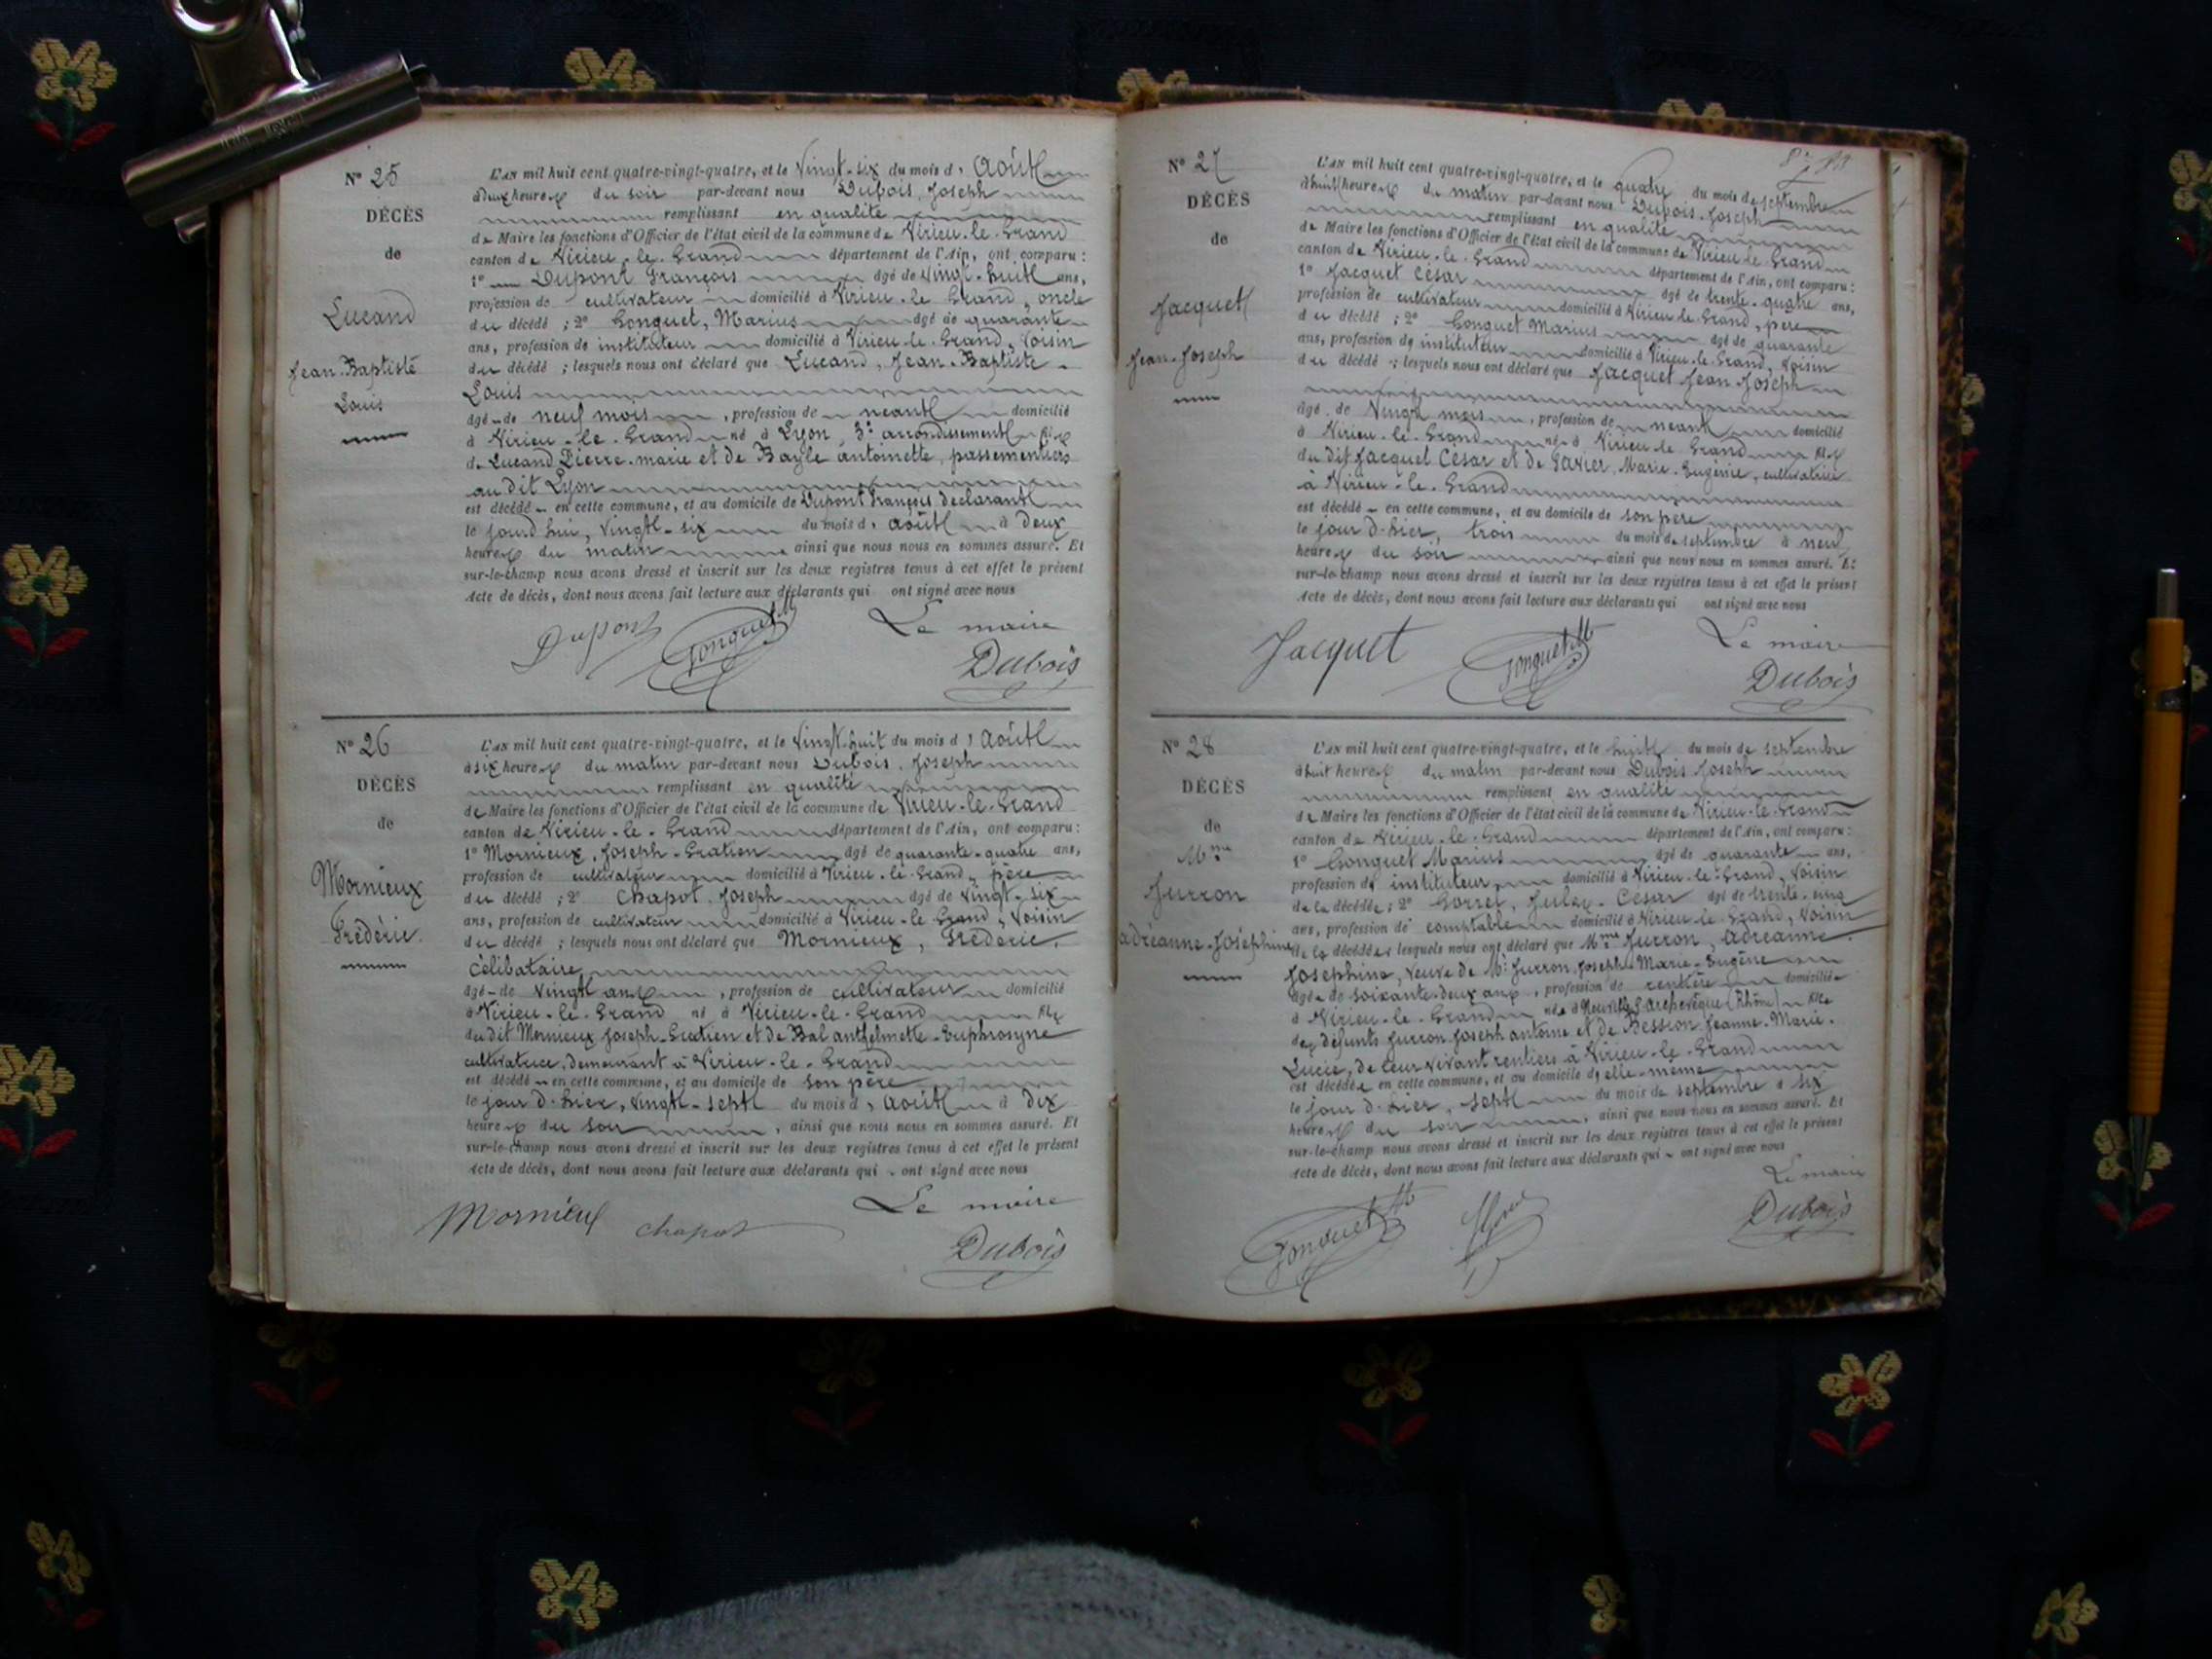 N° 25
DÉCÈS
de
Lucand
Jean-Baptiste
Louis
L'AN mil huit cent quatre-vingt-quatre, et le vingt-six du mois d' Août
à deux heures du soir par-devant nous Dubois, Joseph
remplissant en qualité
de Maire les fonctions d'Officier de l'état civil de la commune de Virieu-le-Grand
canton de Virieu-le-Grand département de l'Ain, ont comparu :
1° Dupont François âgé de vingt-huit ans,
profession de cultivateur domicilié à Virieu-le-Grand, oncle
du décédé ; 2° Gonguet, Marius âgé de quarante
ans, profession de instituteur domicilié à Virieu-le-Grand, voisin
du décédé ; lesquels nous ont déclaré que Lucand, Jean-Baptiste
Louis
âgé de neuf mois, profession de néant domicilié
à Virieu-le-Grand né à Lyon, 3e arrondissement fils
de Lucand Pierre-marie et de Bayle antoinette, passementiers
au dit Lyon
est décédé en cette commune, et au domicile de Dupont François déclarant
le jourd'hui, vingt-six du mois d' août à deux
heures du matin ainsi que nous nous en sommes assuré. Et
sur-le-champ nous avons dressé et inscrit sur les deux registres tenus à cet effet le présent
Acte de décès, dont nous avons fait lecture aux déclarants qui ont signé avec nous
Dupont Gonguet M Le maire
Dubois
N° 26
DÉCÈS
de
Mornieux
Fréderic
L'AN mil huit cent quatre-vingt-quatre, et le vingt-huit du mois d' Août
à six heures du matin par-devant nous Dubois, Joseph
remplissant en qualité
de Maire les fonctions d'Officier de l'état civil de la commune de Virieu-le-Grand
canton de Virieu-le-Grand département de l'Ain, ont comparu :
1° Mornieux, Joseph-Gratien âgé de quarante-quatre ans,
profession de cultivateur domicilié à Virieu-le-Grand, père
du décédé ; 2° Chapot Joseph âgé de vingt-six
ans, profession de cultivateur domicilié à Virieu-le-Grand, voisin
du décédé ; lesquels nous ont déclaré que Mornieux, Fréderic,
célibataire,
âgé de vingt ans, profession de cultivateur domicilié
à Virieu-le-Grand né à Virieu-le-Grand fils
du dit Mornieux Joseph-Gratien et de Bal anthelmette-Euphrosyne
cultivatrice, demeurant à Virieu-le-Grand
est décédé en cette commune, et au domicile de son père
le jour d'hier, vingt-sept du mois d' août à dix
heures du soir, ainsi que nous nous en sommes assuré. Et
sur-le-champ nous avons dressé et inscrit sur les deux registres tenus à cet effet le présent
Acte de décès, dont nous avons fait lecture aux déclarants qui ont signé avec nous
Mornieux chapot Le maire
Dubois
N° 27
DÉCÈS
de
Jacquet
Jean-Joseph
L'AN mil huit cent quatre-vingt-quatre, et le quatre du mois de septembre
à huit heures du matin par-devant nous Dubois-Joseph
remplissant en qualité
de Maire les fonctions d'Officier de l'état civil de la commune de Virieu-le-Grand
canton de Virieu-le-Grand département de l'Ain, ont comparu :
1° Jacquet César âgé de trente-quatre ans,
profession de cultivateur domicilié à Virieu-le-Grand, père
du décédé ; 2° Gonguet Marius âgé de quarante
ans, profession de instituteur domicilié à Virieu-le-Grand, voisin
du décédé ; lesquels nous ont déclaré que Jacquet Jean-Joseph
âgé de vingt mois, profession de néant domicilié
à Virieu-le-Grand né à Virieu-le-Grand fils
du dit Jacquet César et de Marie-Eugénie, cultivatrice
à Virieu-le-Grand
est décédé en cette commune, et au domicile de son père
le jour d'hier, trois du mois de septembre à neuf
heures du soir ainsi que nous nous en sommes assuré. Et
sur-le-champ nous avons dressé et inscrit sur les deux registres tenus à cet effet le présent
Acte de décès, dont nous avons fait lecture aux déclarants qui ont signé avec nous
Jacquet Gonguet M Le maire
Dubois
N° 28
DÉCÈS
de
Mme
Jurron
adréanne-Joséphine
L'AN mil huit cent quatre-vingt-quatre, et le huit du mois de septembre
à huit heures du matin par-devant nous Dubois Joseph
remplissant en qualité
de Maire les fonctions d'Officier de l'état civil de la commune de Virieu-le-Grand
canton de Virieu-le-Grand département de l'Ain, ont comparu :
1° Gonguet Marius âgé de quarante ans,
profession de instituteur, domicilié à Virieu-le-Grand, voisin
de la décédée ; 2° César âgé de trente-cinq
ans, profession de comptable domicilié à Virieu-le-Grand, voisin
de la décédée ; lesquels nous ont déclaré que Mme Jurron, adréanne
Josephine, veuve de Mr Jurron, Joseph-Marie-Eugène
âgée de soixante-deux ans, profession de rentière domiciliée
à Virieu-le-Grand née à Neuville-l'Archevêque (Rhône) fille
des défunts Jurron Joseph antoine et de Bession Jeanne-Marie-
Lucie, de leur vivant rentiers à Virieu-le-Grand
est décédée en cette commune, et au domicile d'elle-même
le jour d'hier, sept du mois de septembre à six
heures du soir, ainsi que nous nous en sommes assuré. Et
sur-le-champ nous avons dressé et inscrit sur les deux registres tenus à cet effet le présent
Acte de décès, dont nous avons fait lecture aux déclarants qui ont signé avec nous
Le maire
Gonguet M Dubois